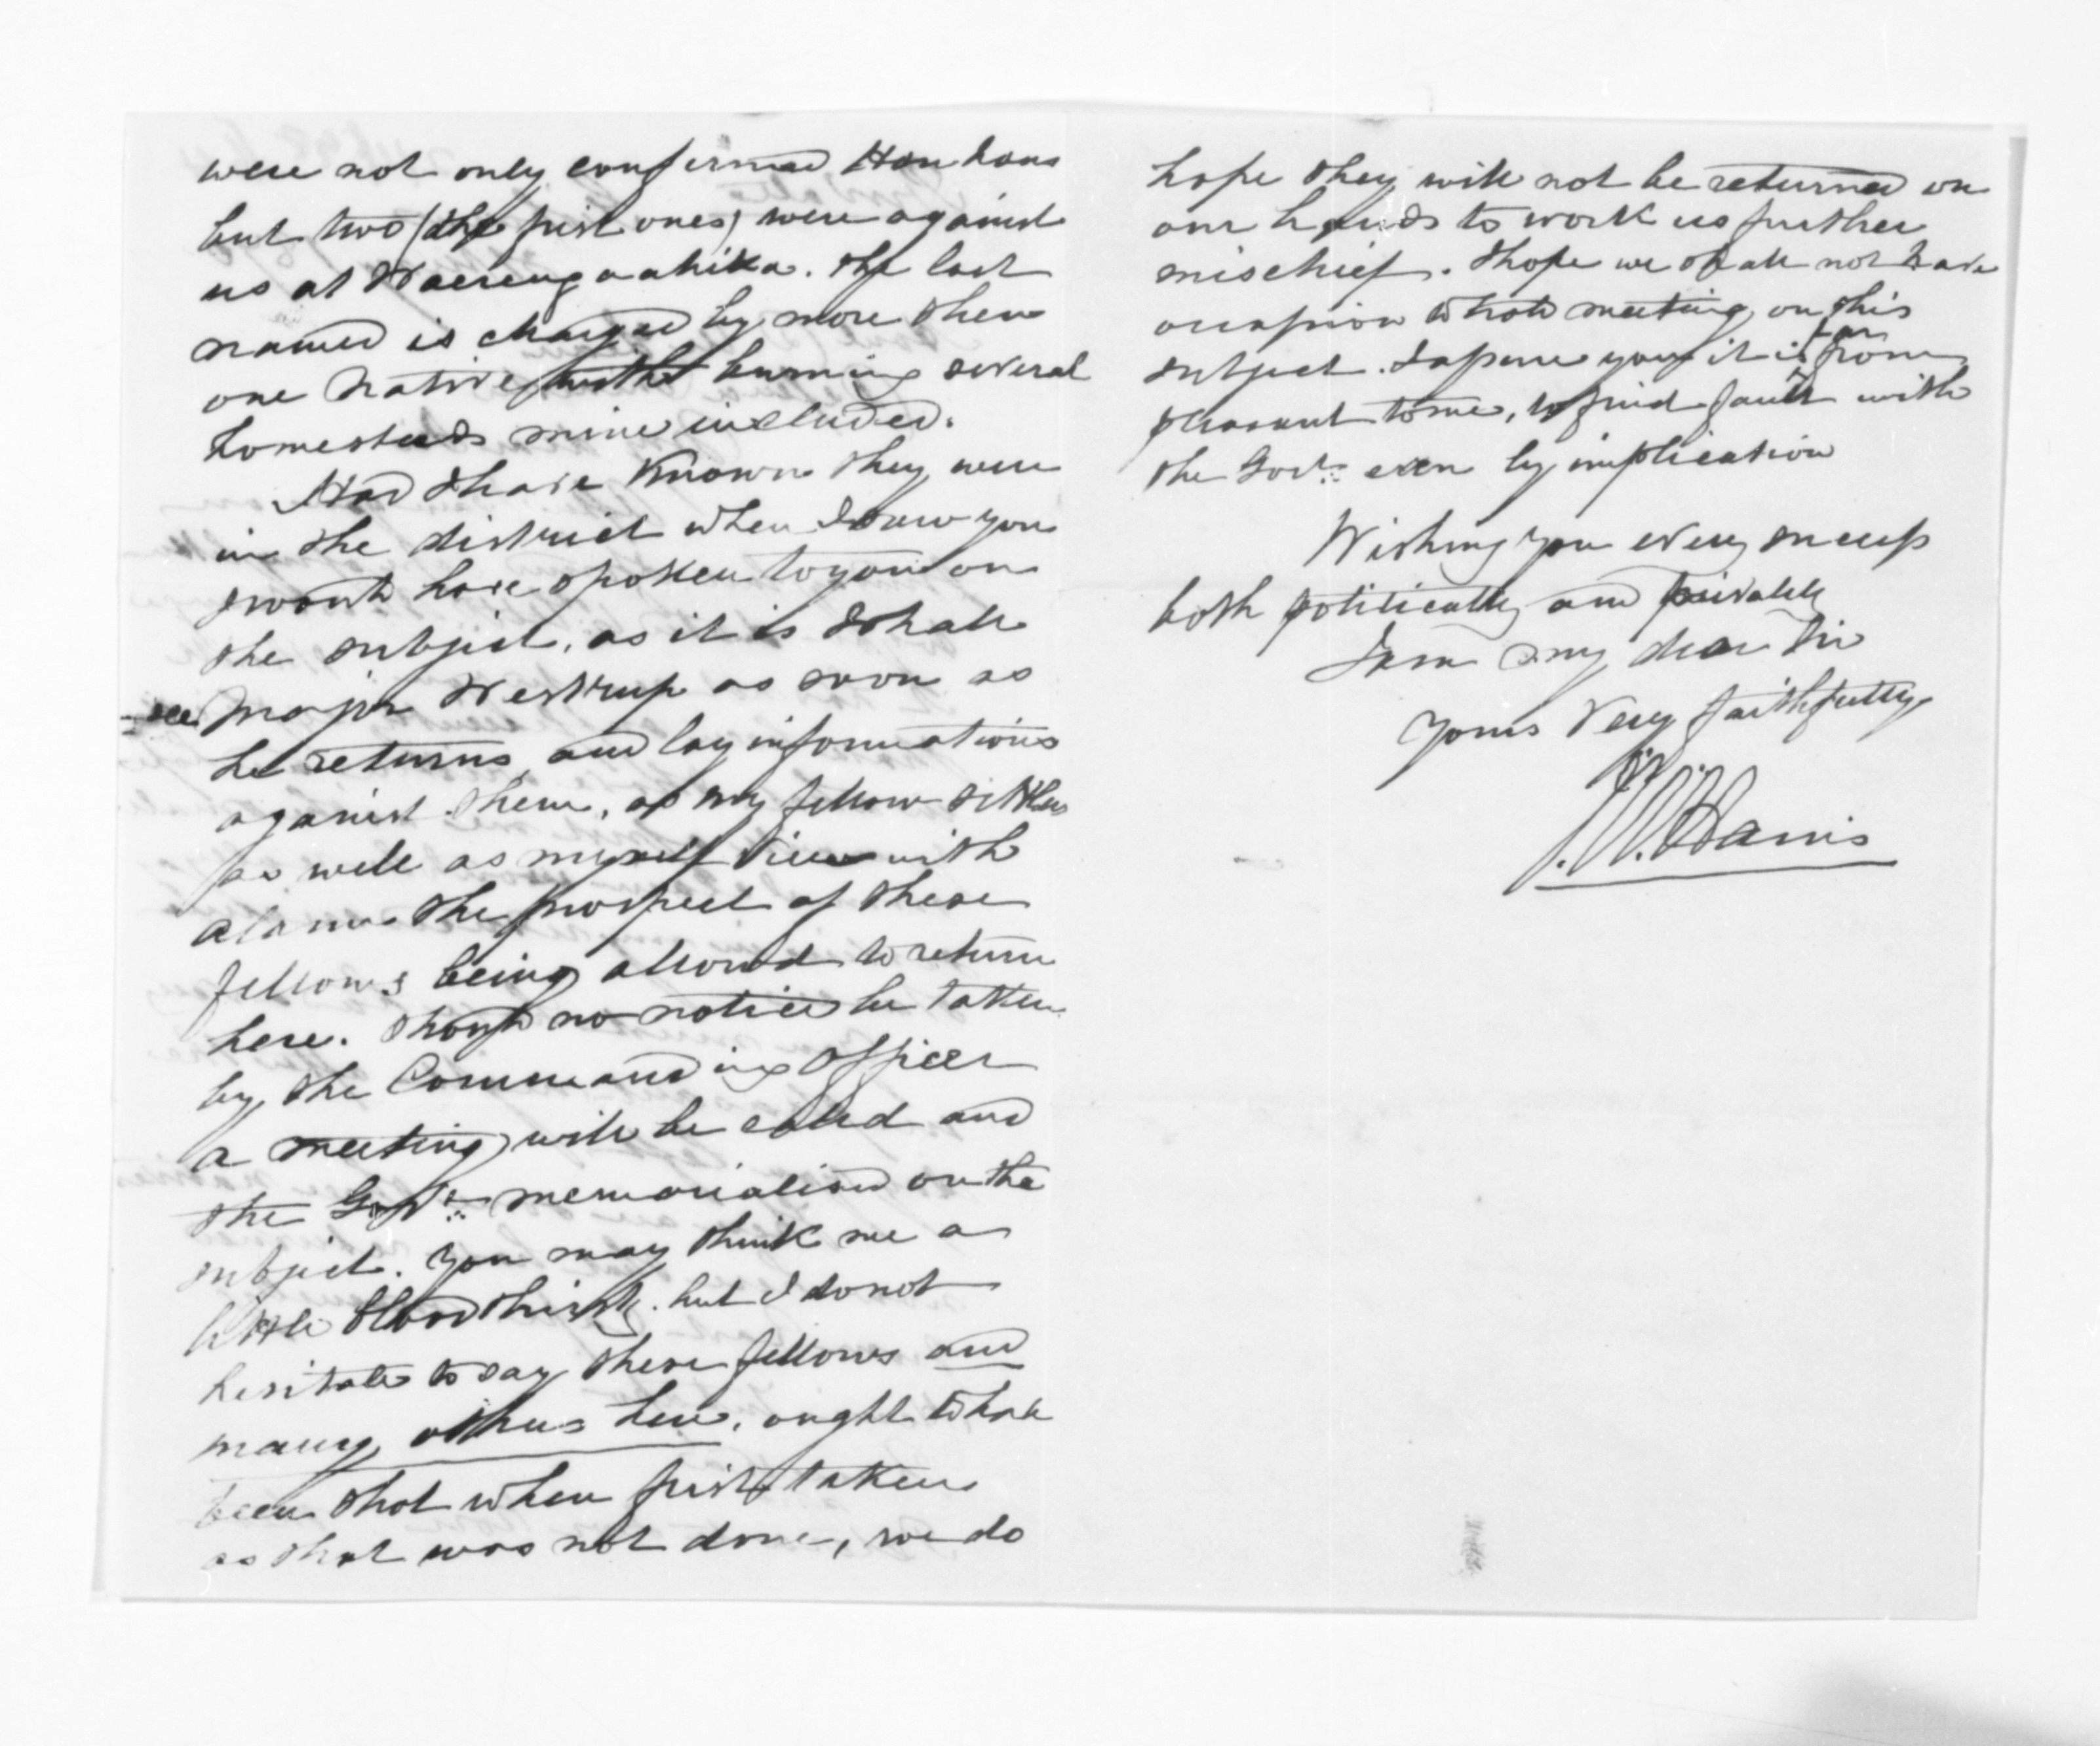 were not only confirmed Hau Haus
but two (the first ones) were against
us at Waerengaahika. The last
named is charged by more then
one native with burning several
homesteads mine included.
Had I have known they were
in the district when I saw you
I would have spoken to you on
the subject, as it is I shall
see Major Westrup as soon as
he returns, and lay informations
against them, as my fellow settlers
as well as myself view with
alarm the prospect of these
fellows being allowed to return
here. Should no notice be taken
by the Commanding Officer
a meeting will be called and
the Govt. memorialised on the
subject. You may think me a
little bloodthirsty. but I do not
hesitate to say these fellows and
many others here, ought to have
been shot when first taken
as that was not done, we do
hope they will not be returned on
our hands to work us further
mischief. I hope we shall not have
occasion to hold meeting on this
subject. I assure you it is far from
pleasant to me, to find fault with
the Govt. even by implication
Wishing you every success
both politically and privately
I am my dear Sir
Yours Very faithfully
J. W. Harris